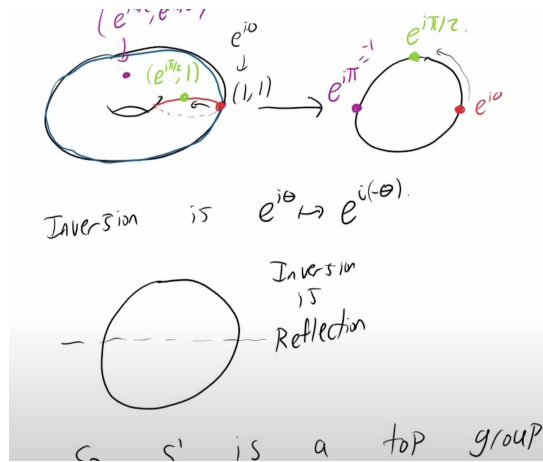 e^{i0}
(e^{iπ/2}, 1)
(1, 1)
e^{iπ/2}.
e^{iπ} = -1
e^{i0}
Inversion is e^{iθ} ↦ e^{i(-θ)}.
Inversion
is
Reflection
So S' is a top group